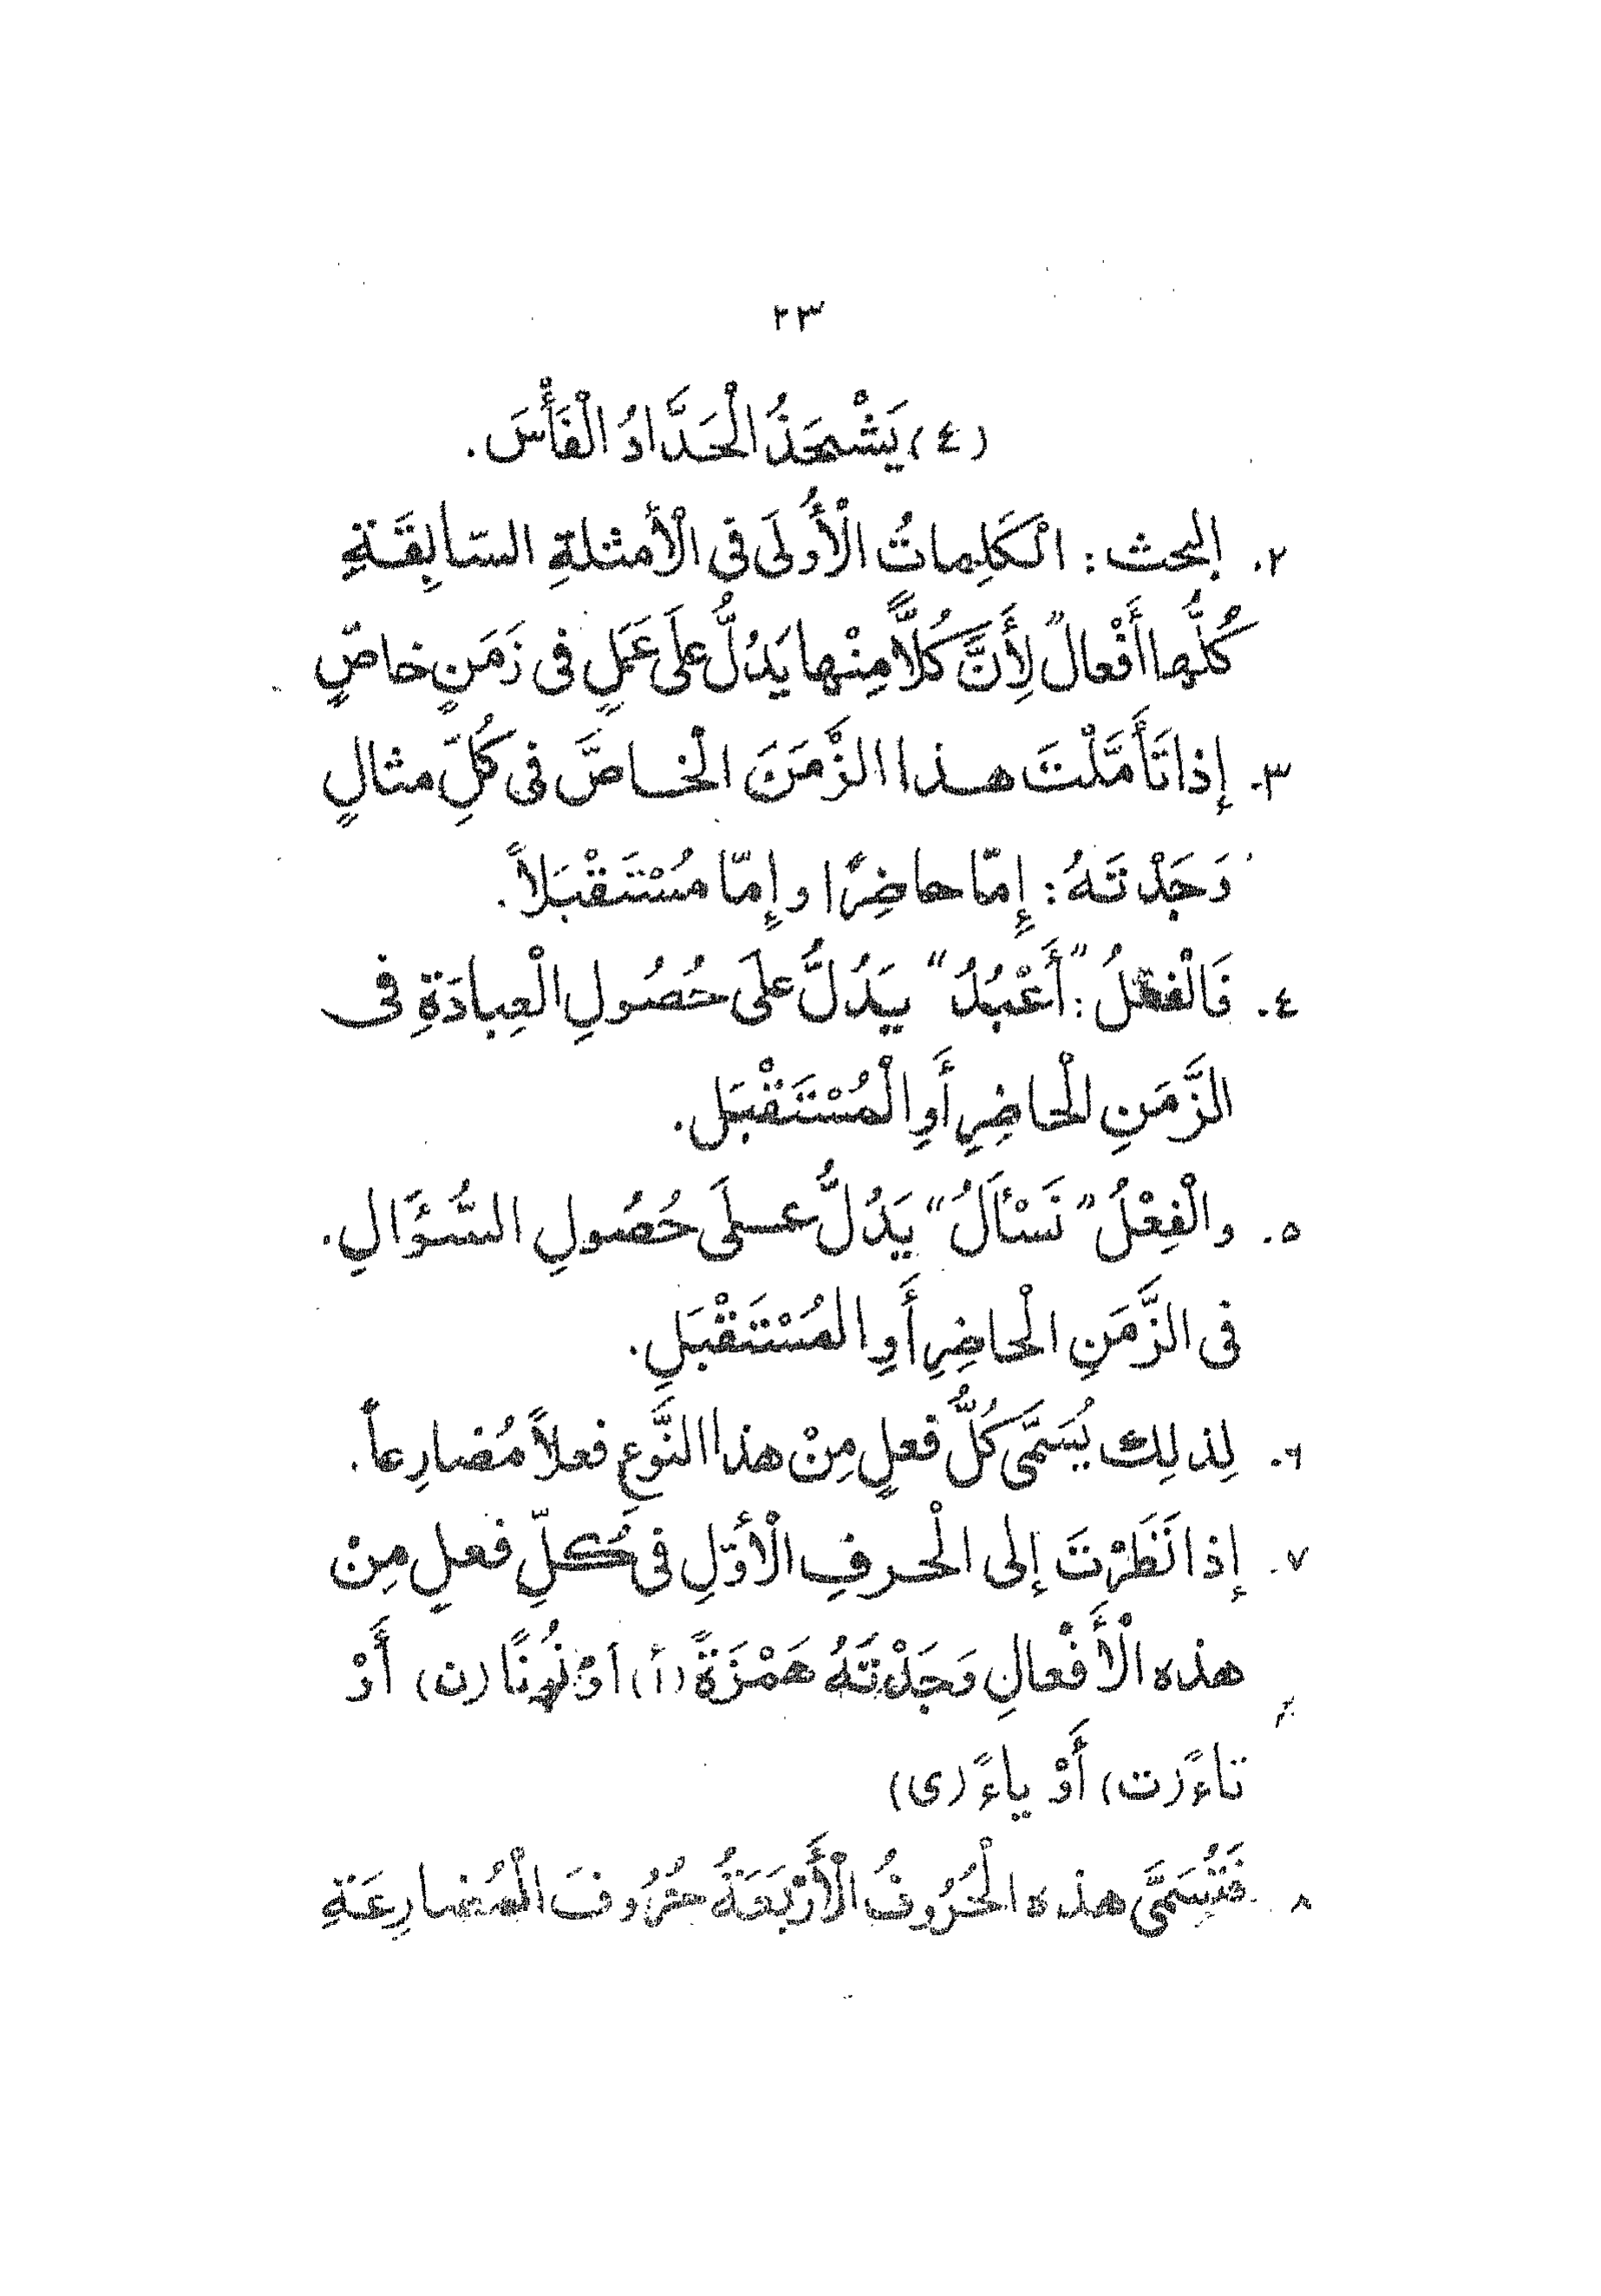 ٢٣
(٤) يَشْحَذُ الْحَدَّادُ الْفَأْسَ.
٢. البحث : الْكَلِماتُ الْأُولَى فى الْأمثلةِ السّابِقَةِ
كُلُّها أَفْعالٌ لِأَنَّ كُلاًّ مِنْها يَدُلُّ علَى عَمَلٍ فى زَمَنٍ خاصٍّ
٣. إِذا تَأَمَّلْتَ هذا الزَّمَنَ الْخاصَّ فى كُلِّ مثالٍ
وَجَدْتَهُ : إِمّا حاضِرًا وإِمّا مُسْتَقْبَلاً.
٤. فَالْفعْلُ : "أَعْبُدُ" يَدُلُّ علَى حُصُولِ الْعِبادَةِ فى
الزَّمَنِ الْحاضِرِ أَوِ الْمُسْتَقْبَلِ.
٥. والْفِعْلُ "نَسْأَلُ" يَدُلُّ علَى حُصُولِ السُّؤَالِ.
فى الزَّمَنِ الْحاضِرِ أَوِ المُسْتَقْبَلِ.
٦. لِذلِك يُسَمَّى كُلُّ فعلٍ مِنْ هذا النَّوْعِ فعلاً مُضارِعاً.
٧. إِذا نَظَرْتَ إِلى الْحرفِ الْأوّلِ فى كُلِّ فعلٍ مِنْ
هذه الْأَفْعالِ وَجَدْتَهُ هَمْزَةً (أ) أوْ نُونًا (ن) أَوْ
تاءً (ت) أَوْ ياءً (ى)
٨. فَتُسَمَّى هذه الْحُرُوفُ الْأَرْبَعَةُ حُرُوفَ الْمُضارِعَةِ